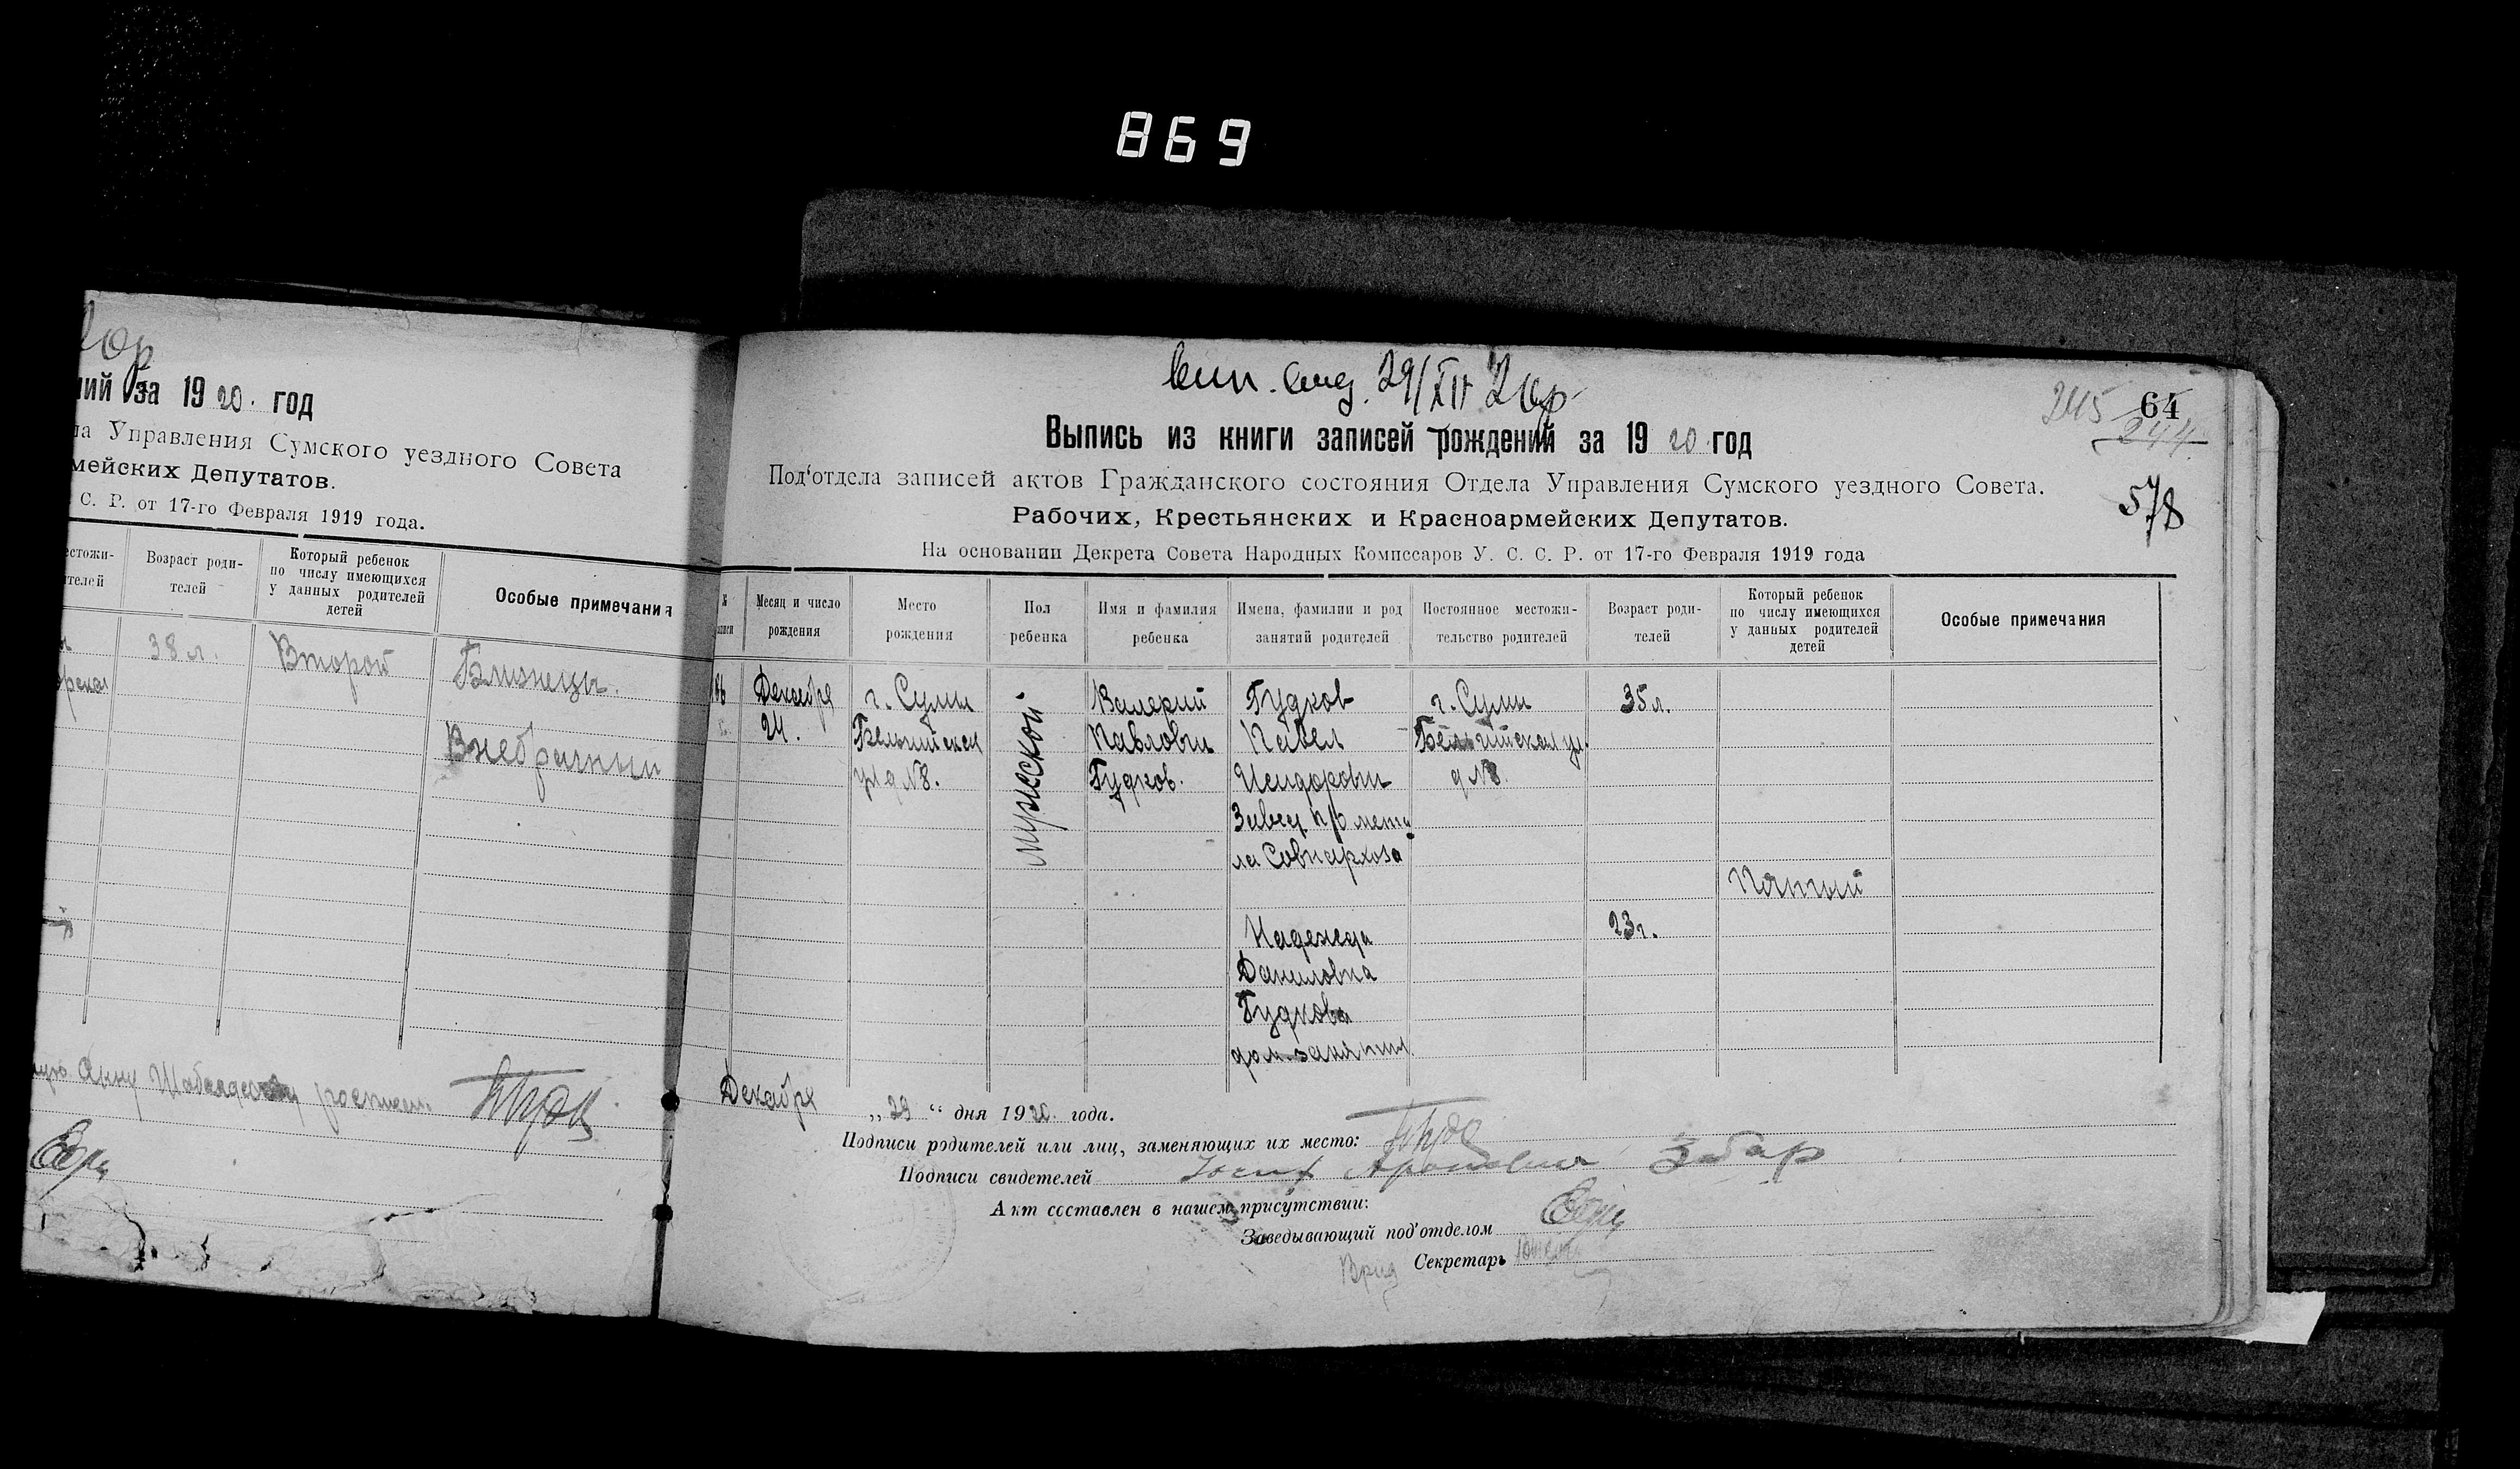 869
ний за 1920. год
ла Управления Сумского уездного Совета
мейских Депутатов.
С. Р. от 17-го Февраля 1919 года.
естожи-
ителей
Возраст роди-
телей
Который ребенок
по числу имеющихся
у данных родителей
детей
Особые примечания
38 л.
Второй
Близнецы.
Внебрачный
Анну
вып. выд. 29/XII 20р
245
64
244
578
Выпись из книги записей рождений за 1920 год
Под'отдела записей актов Гражданского состояния Отдела Управления Сумского уездного Совета.
Рабочих, Крестьянских и Красноармейских Депутатов.
На основании Декрета Совета Народных Комиссаров У. С. С. Р. от 17-го Февраля 1919 года
Месяц и число
рождения
Место
рождения
Пол
ребенка
Имя и фамилия
ребенка
Имена, фамилии и род
занятий родителей
Постоянное местожи-
тельство родителей
Возраст роди-
телей
Который ребенок
по числу имеющихся
у данных родителей
детей
Особые примечания
Декабря
24.
г. Сумы
Бельгийская
ул д №8.
Мужеской
Валерий
Павлович
Гудков.
Гудков
Павел
Исидорович
Завед п/о метал
ла Совнархоза
Надежда
Даниловна
Гудкова
дом. занятия
г. Сумы
Бельгийская ул.
д №8
35 л.
23 г.
Пятый
Декабря „29“ дня 1920. года.
Подписи родителей или лиц, заменяющих их место:
Подписи свидетелей
Акт составлен в нашем присутствии:
Заведывающий под'отделом
Врид Секретарь